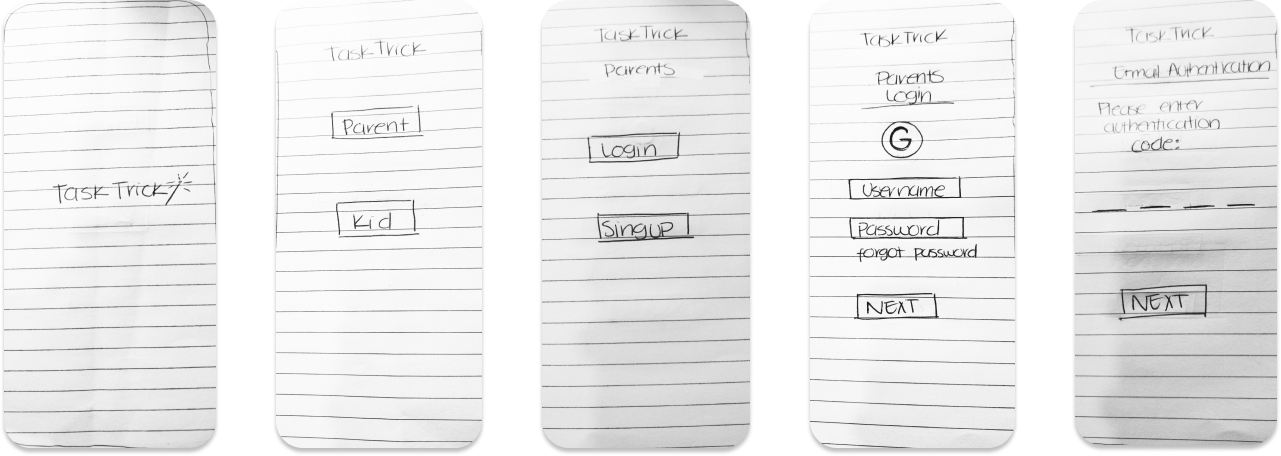 TaskTrick
TaskTrick
Parent
Kid
TaskTrick
Parents
Login
Singup
TaskTrick
Parents
Login
G
Username
Password
forgot password
NEXT
TaskTrick
Email Authentication
Please enter
authentication
code:
NEXT